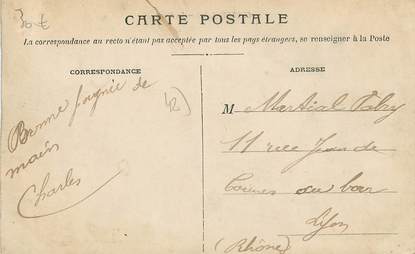 30 €
CARTE POSTALE
La correspondance au recto n'étant pas acceptée par tous les pays étrangers, se renseigner à la Poste
CORRESPONDANCE
ADRESSE
Bonne poignée de
main
Charles
42
M Martial Fabry
11 rue Jean de
Tournes au 1er
Lyon
(Rhône)